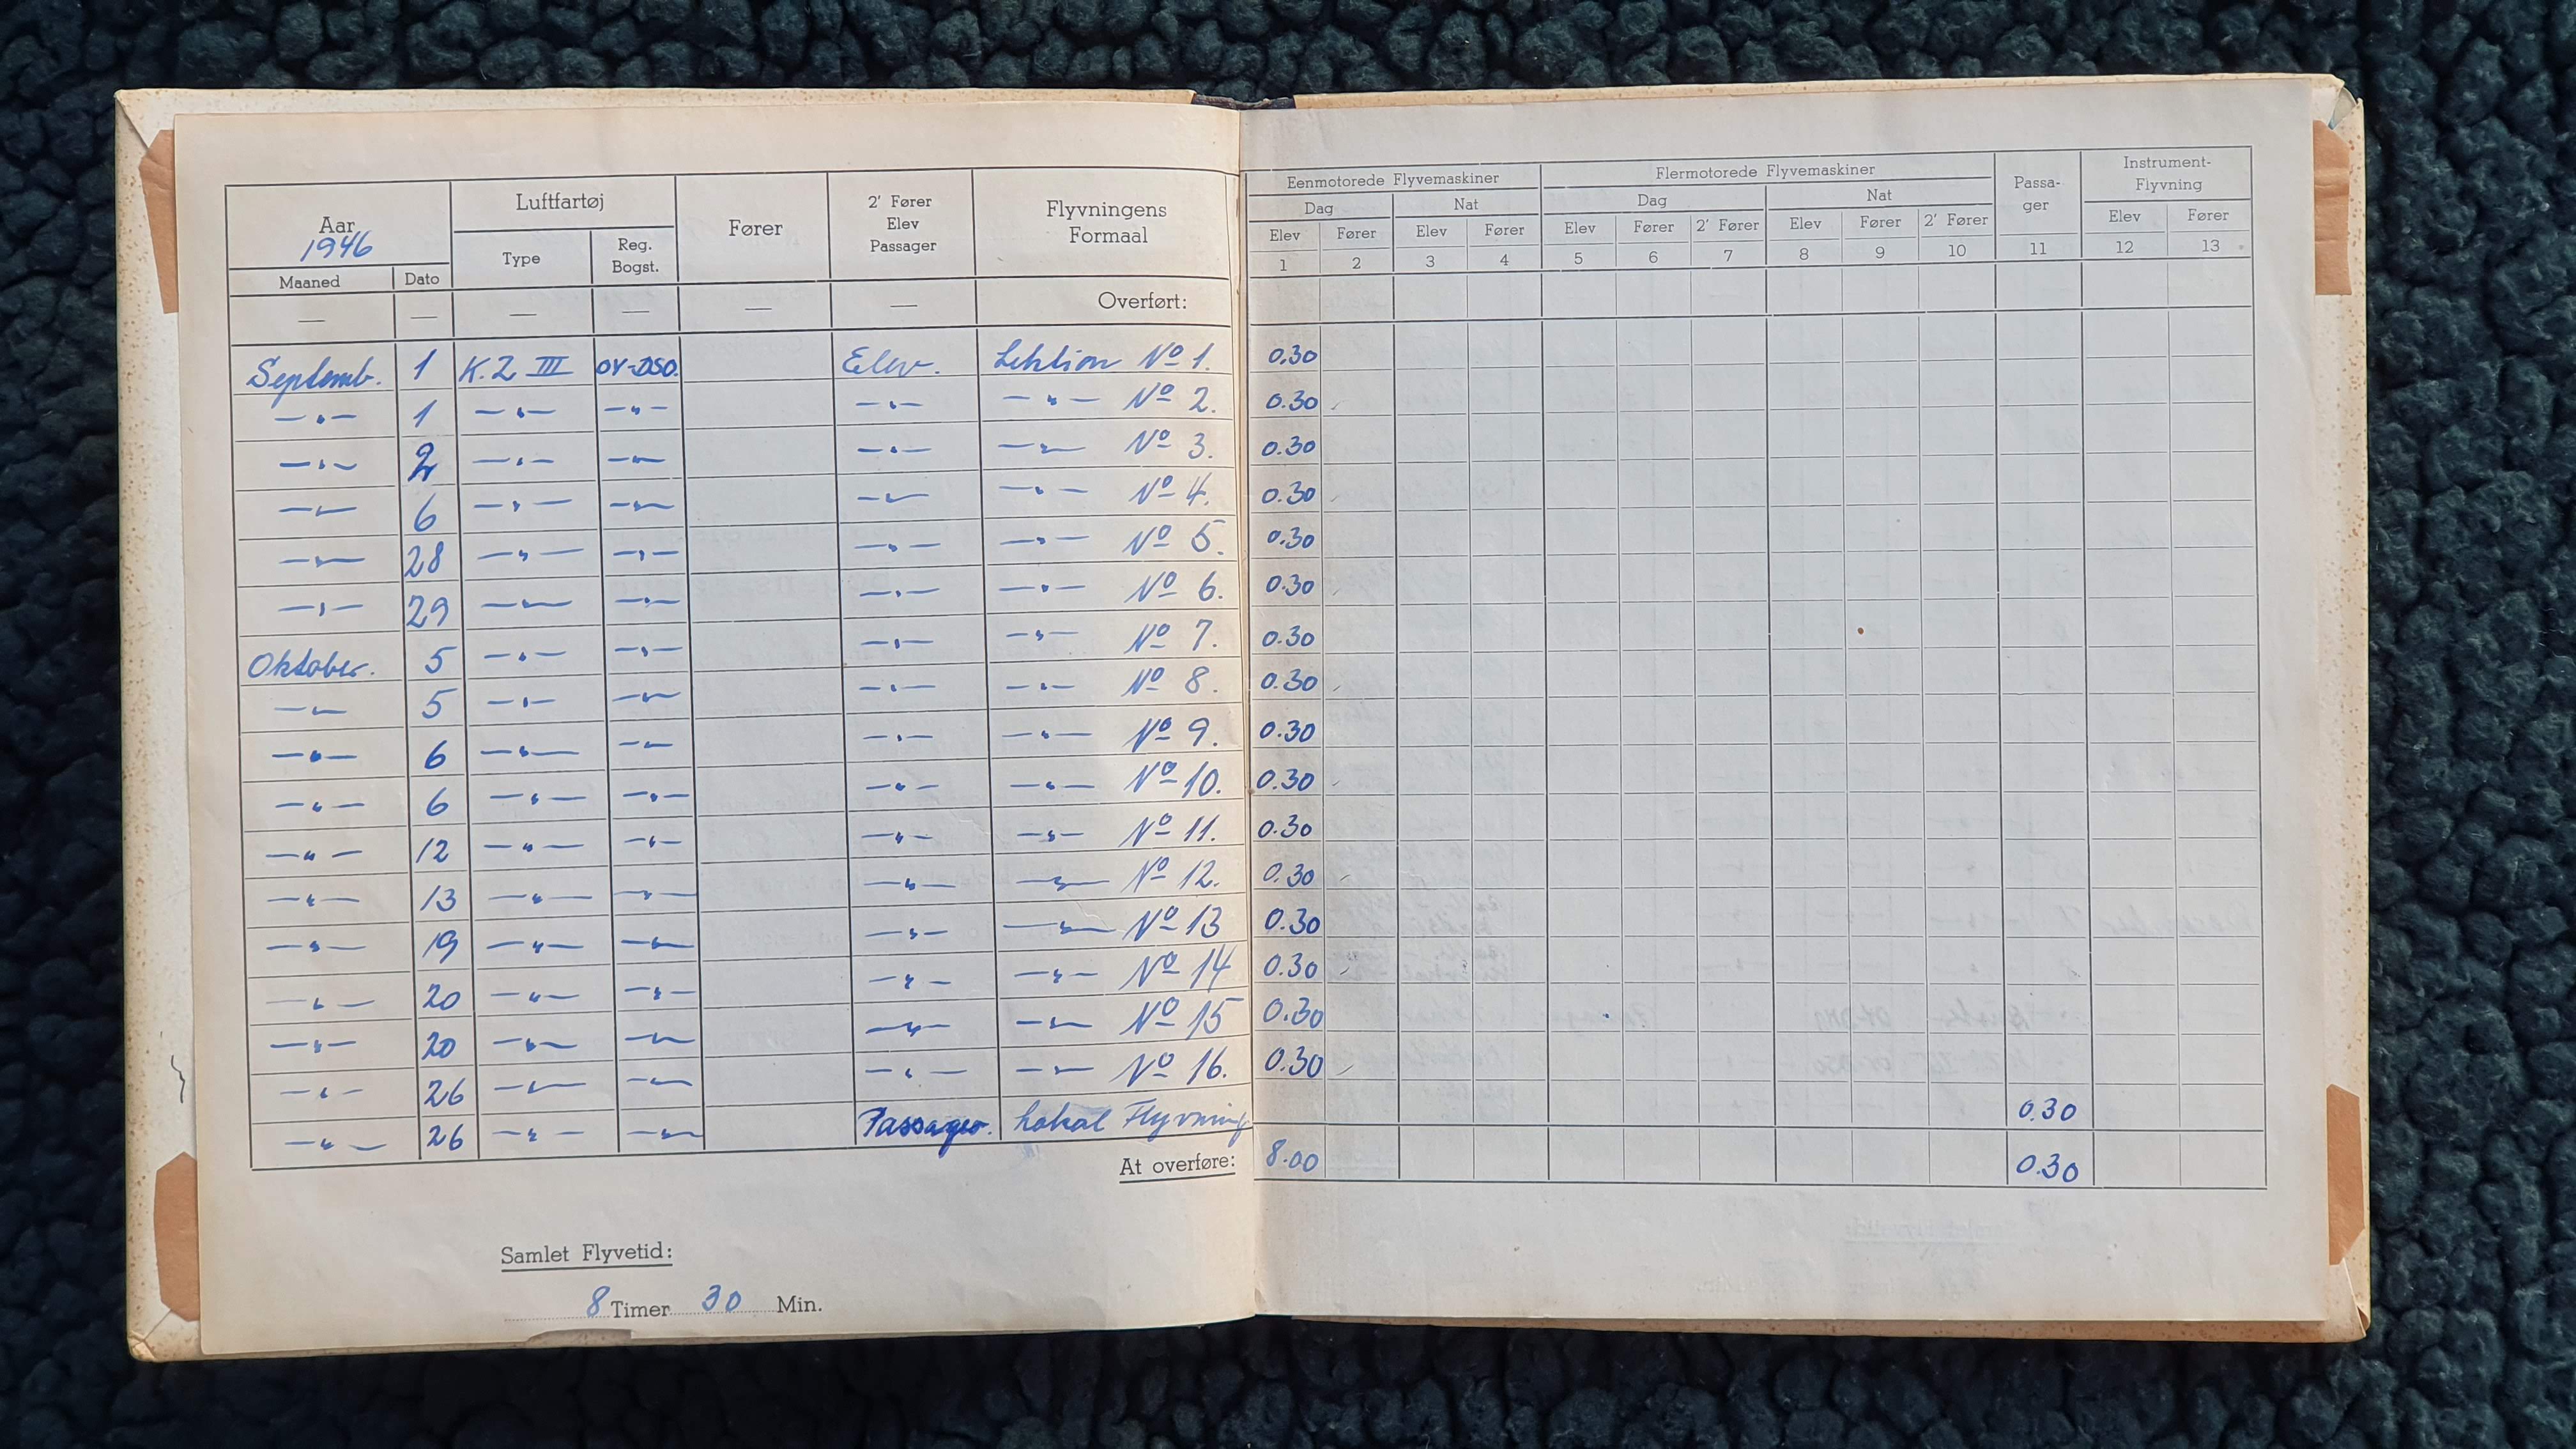 Aar 1946 Luftfartøj Fører 2' Fører Elev Passager Flyvningens Formaal Eenmotorede Flyvemaskiner Flermotorede Flyvemaskiner Passager Instrument-Flyvning
Dag Nat Dag Nat
Maaned Dato Type Reg. Bogst. Elev Fører Elev Fører Elev Fører 2' Fører Elev Fører 2' Fører Elev Fører
1 2 3 4 5 6 7 8 9 10 11 12 13
— — — — — — Overført:
Septemb. 1 K.Z III OY-DSO. Elev. Lektion Nº 1. 0.30
—〃— 1 —〃— —〃— —〃— —〃— Nº 2. 0.30
—〃— 2 —〃— —〃— —〃— —〃— Nº 3. 0.30
—〃— 6 —〃— —〃— —〃— —〃— Nº 4. 0.30
—〃— 28 —〃— —〃— —〃— —〃— Nº 5. 0.30
—〃— 29 —〃— —〃— —〃— —〃— Nº 6. 0.30
Oktober. 5 —〃— —〃— —〃— —〃— Nº 7. 0.30
—〃— 5 —〃— —〃— —〃— —〃— Nº 8. 0.30
—〃— 6 —〃— —〃— —〃— —〃— Nº 9. 0.30
—〃— 6 —〃— —〃— —〃— —〃— Nº 10. 0.30
—〃— 12 —〃— —〃— —〃— —〃— Nº 11. 0.30
—〃— 13 —〃— —〃— —〃— —〃— Nº 12. 0.30
—〃— 19 —〃— —〃— —〃— —〃— Nº 13 0.30
—〃— 20 —〃— —〃— —〃— —〃— Nº 14 0.30
—〃— 20 —〃— —〃— —〃— —〃— Nº 15 0.30
—〃— 26 —〃— —〃— —〃— —〃— Nº 16. 0.30
—〃— 26 —〃— —〃— Passager. Lokal Flyvning 0.30
At overføre: 8.00 0.30
Samlet Flyvetid:
8 Timer 30 Min.